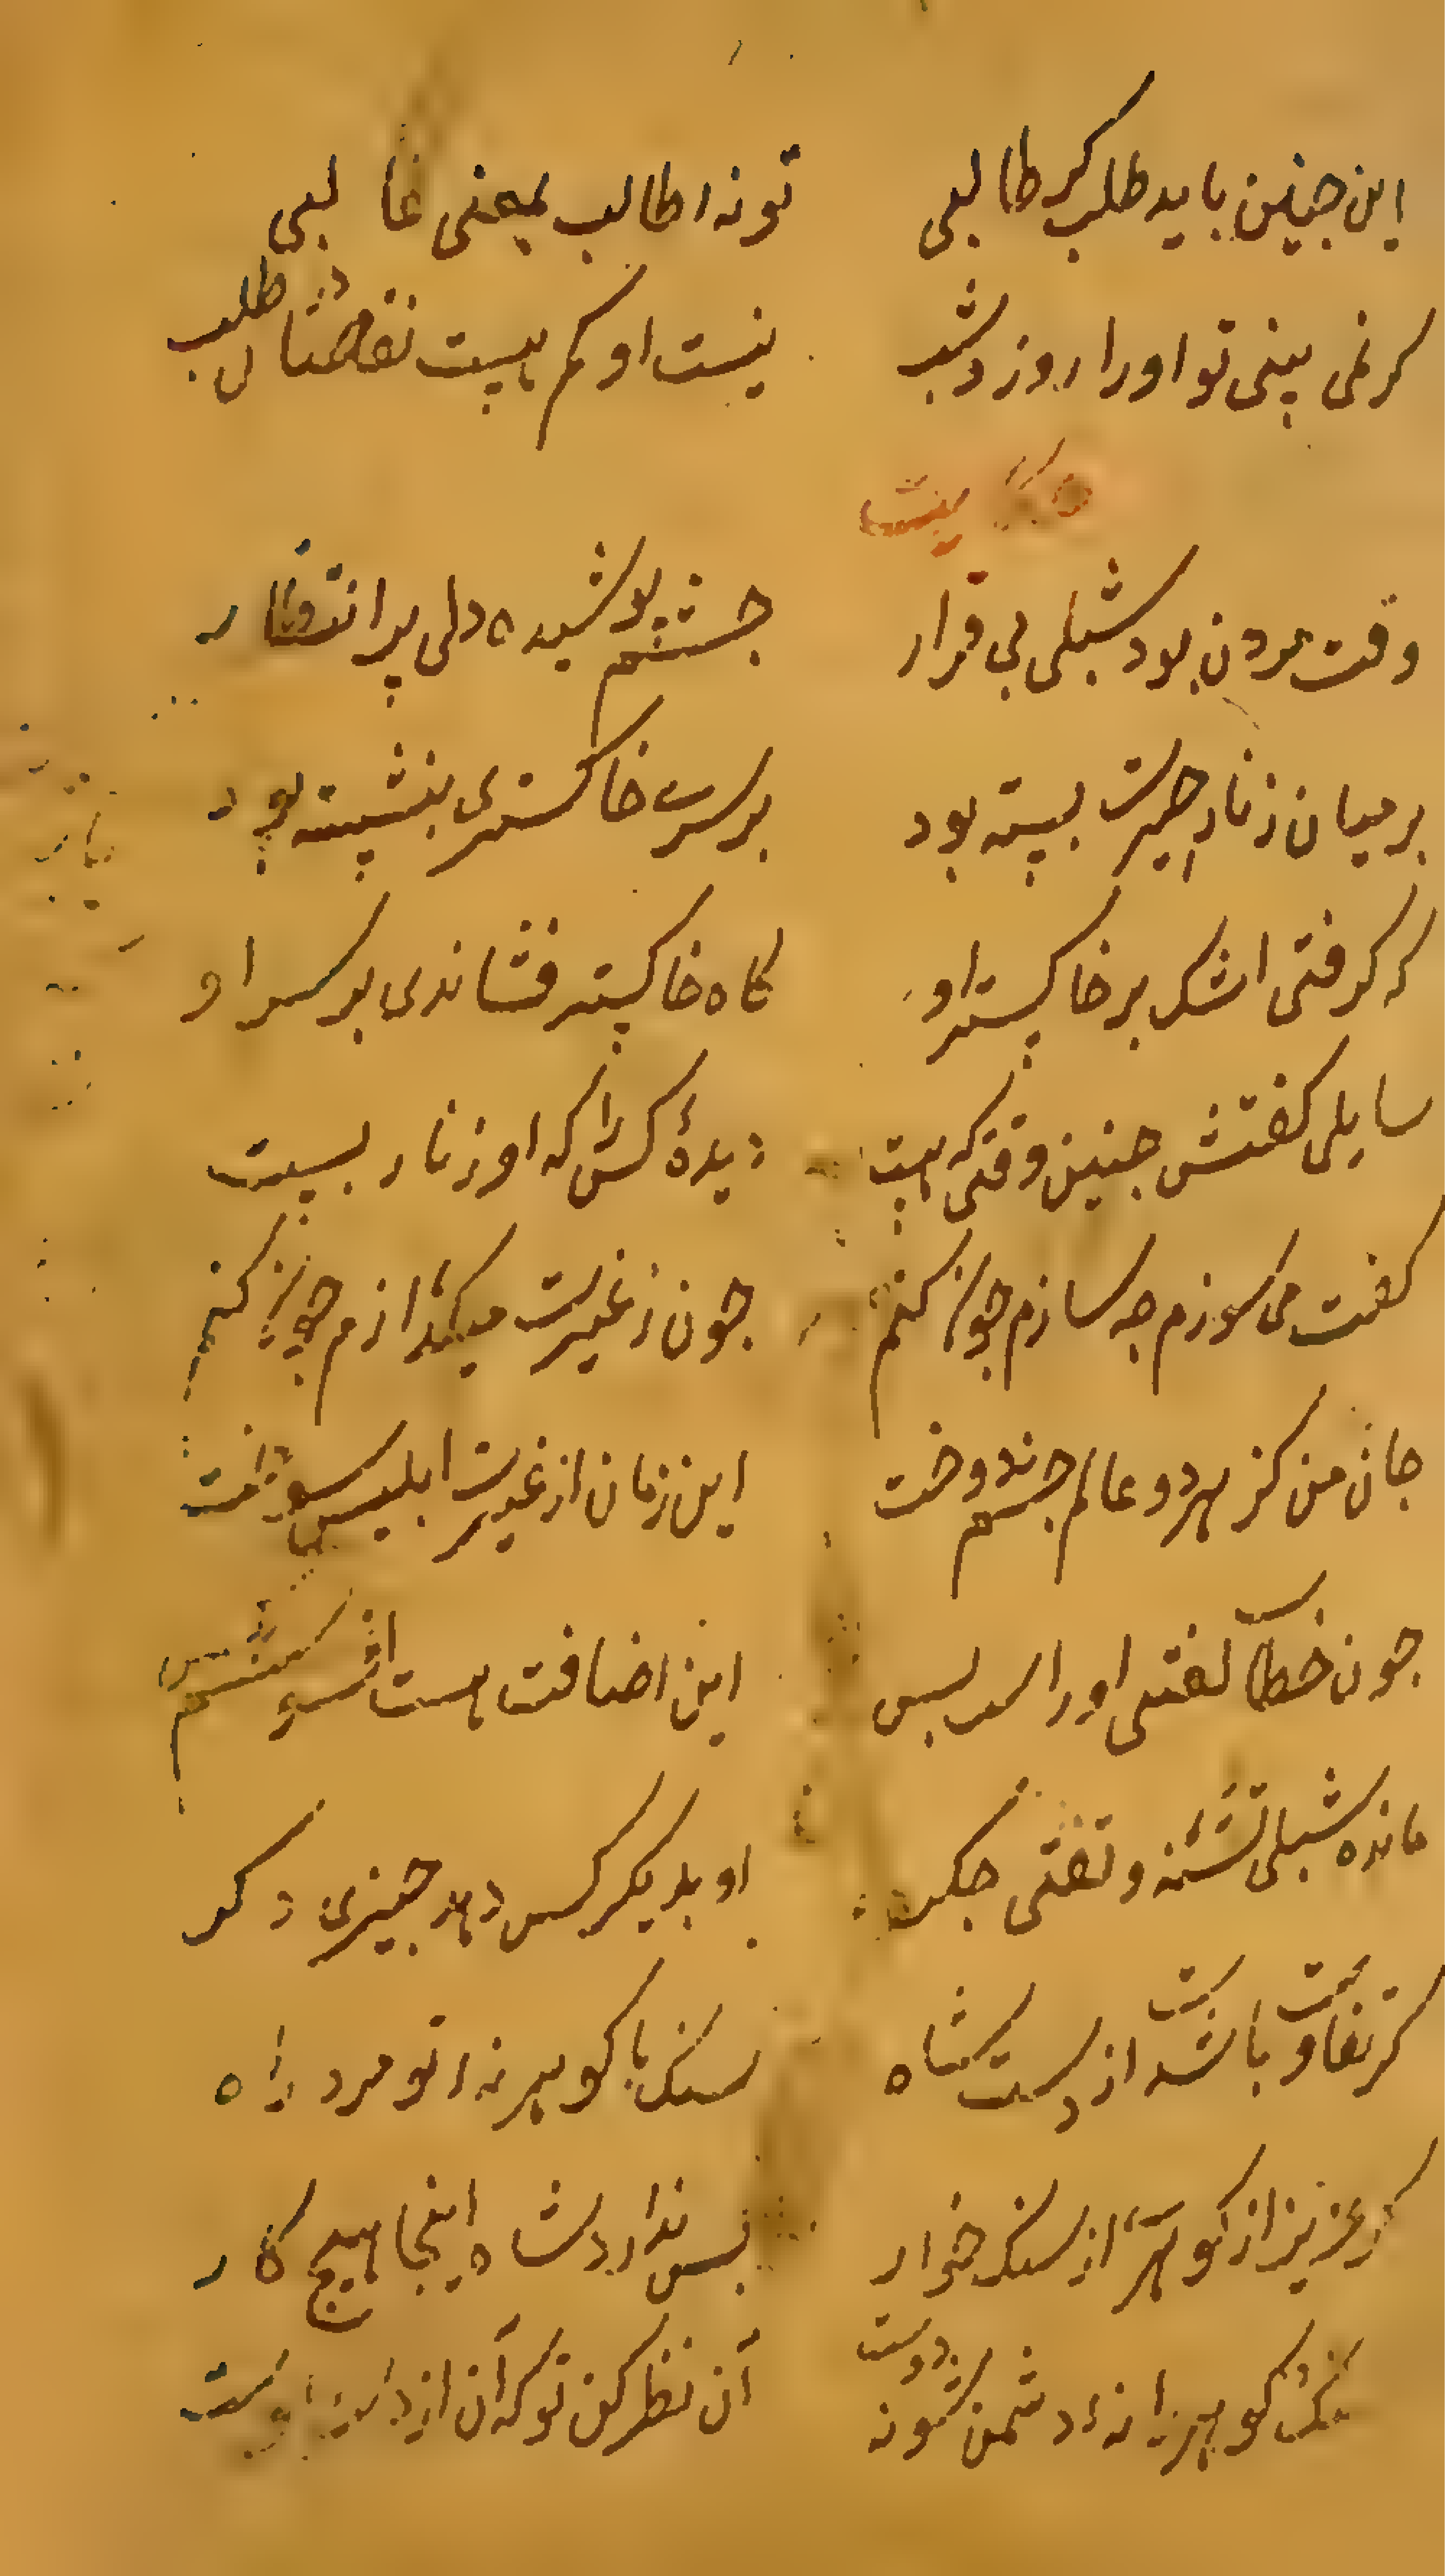 این جنین باید طلب کر طالبی تو نهٔ طالب بمعنی غالبی
کر نمی بینی تو او را روز و شب نیست او کم هست نقصان در طلب
حکایت
وقت مردن بود شبلی بی قرار جشم پوشیده دلی پر انتظار
بر میان زنار حیرت بسته بود بر سر خاکستری بنشسته بود
که کرفتی اشک بر خاکستر او کاه خاکستر فشاندی بر سر او
سایلی کفتش جنین وقتی که هست دیدهٔ کس را که او زنار بست
کفت می سوزم جه سازم جون کنم جون ز غیرت میکدازم جون کنم
جان من کز هر دو عالم جشم دوخت این زمان از غیرت ابلیس سوخت
جون خطاب لعنتی او راست بس این اضافت هست افسوسم
مانده شبلی تشنه و تفتی جکر او بدیکر کس دهد جیزی دکر
کر تفاوت باشدت از دست شاه سنک با کوهر نهٔ تو مرد راه
کر عزیز از کوهر از سنک خوار بس ندارد شاه اینجا هیج کار
سنک و کوهر را نهٔ دشمن نه دوست آن نظر کن تو که آن از دست اوست